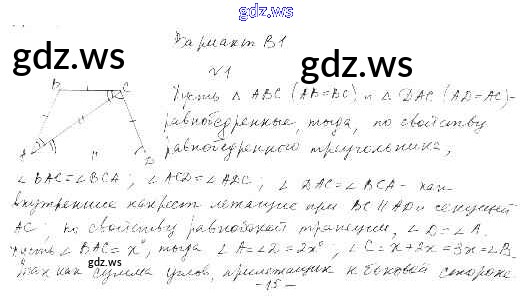 gdz.ws
Вариант В1
gdz.ws
gdz.ws
√1
B C
Пусть △ ABC (AB=BC) и △ DAC (AD=AC)-
равнобедренные, тогда, по свойству
равнобедренного треугольника,
A D
∠ BAC=∠BCA; ∠ ACD=∠ADC; ∠ DAC=∠ BCA- как
внутренние накрест лежащие при BC II AD и секущей
AC, по свойству равнобокой трапеции, ∠D=∠A.
Пусть ∠ BAC=x°, тогда ∠A=∠2=2x°, ∠C=x+2x=3x=∠B.
gdz.ws
Так как сумма углов, прилежащих к боковой стороне
-15-